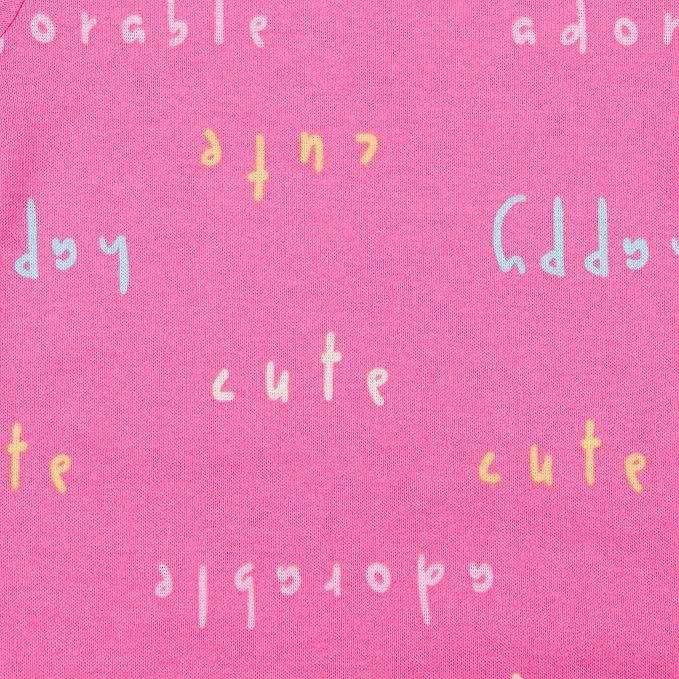 orable ador
cute
happy
cute
te cute
adorable